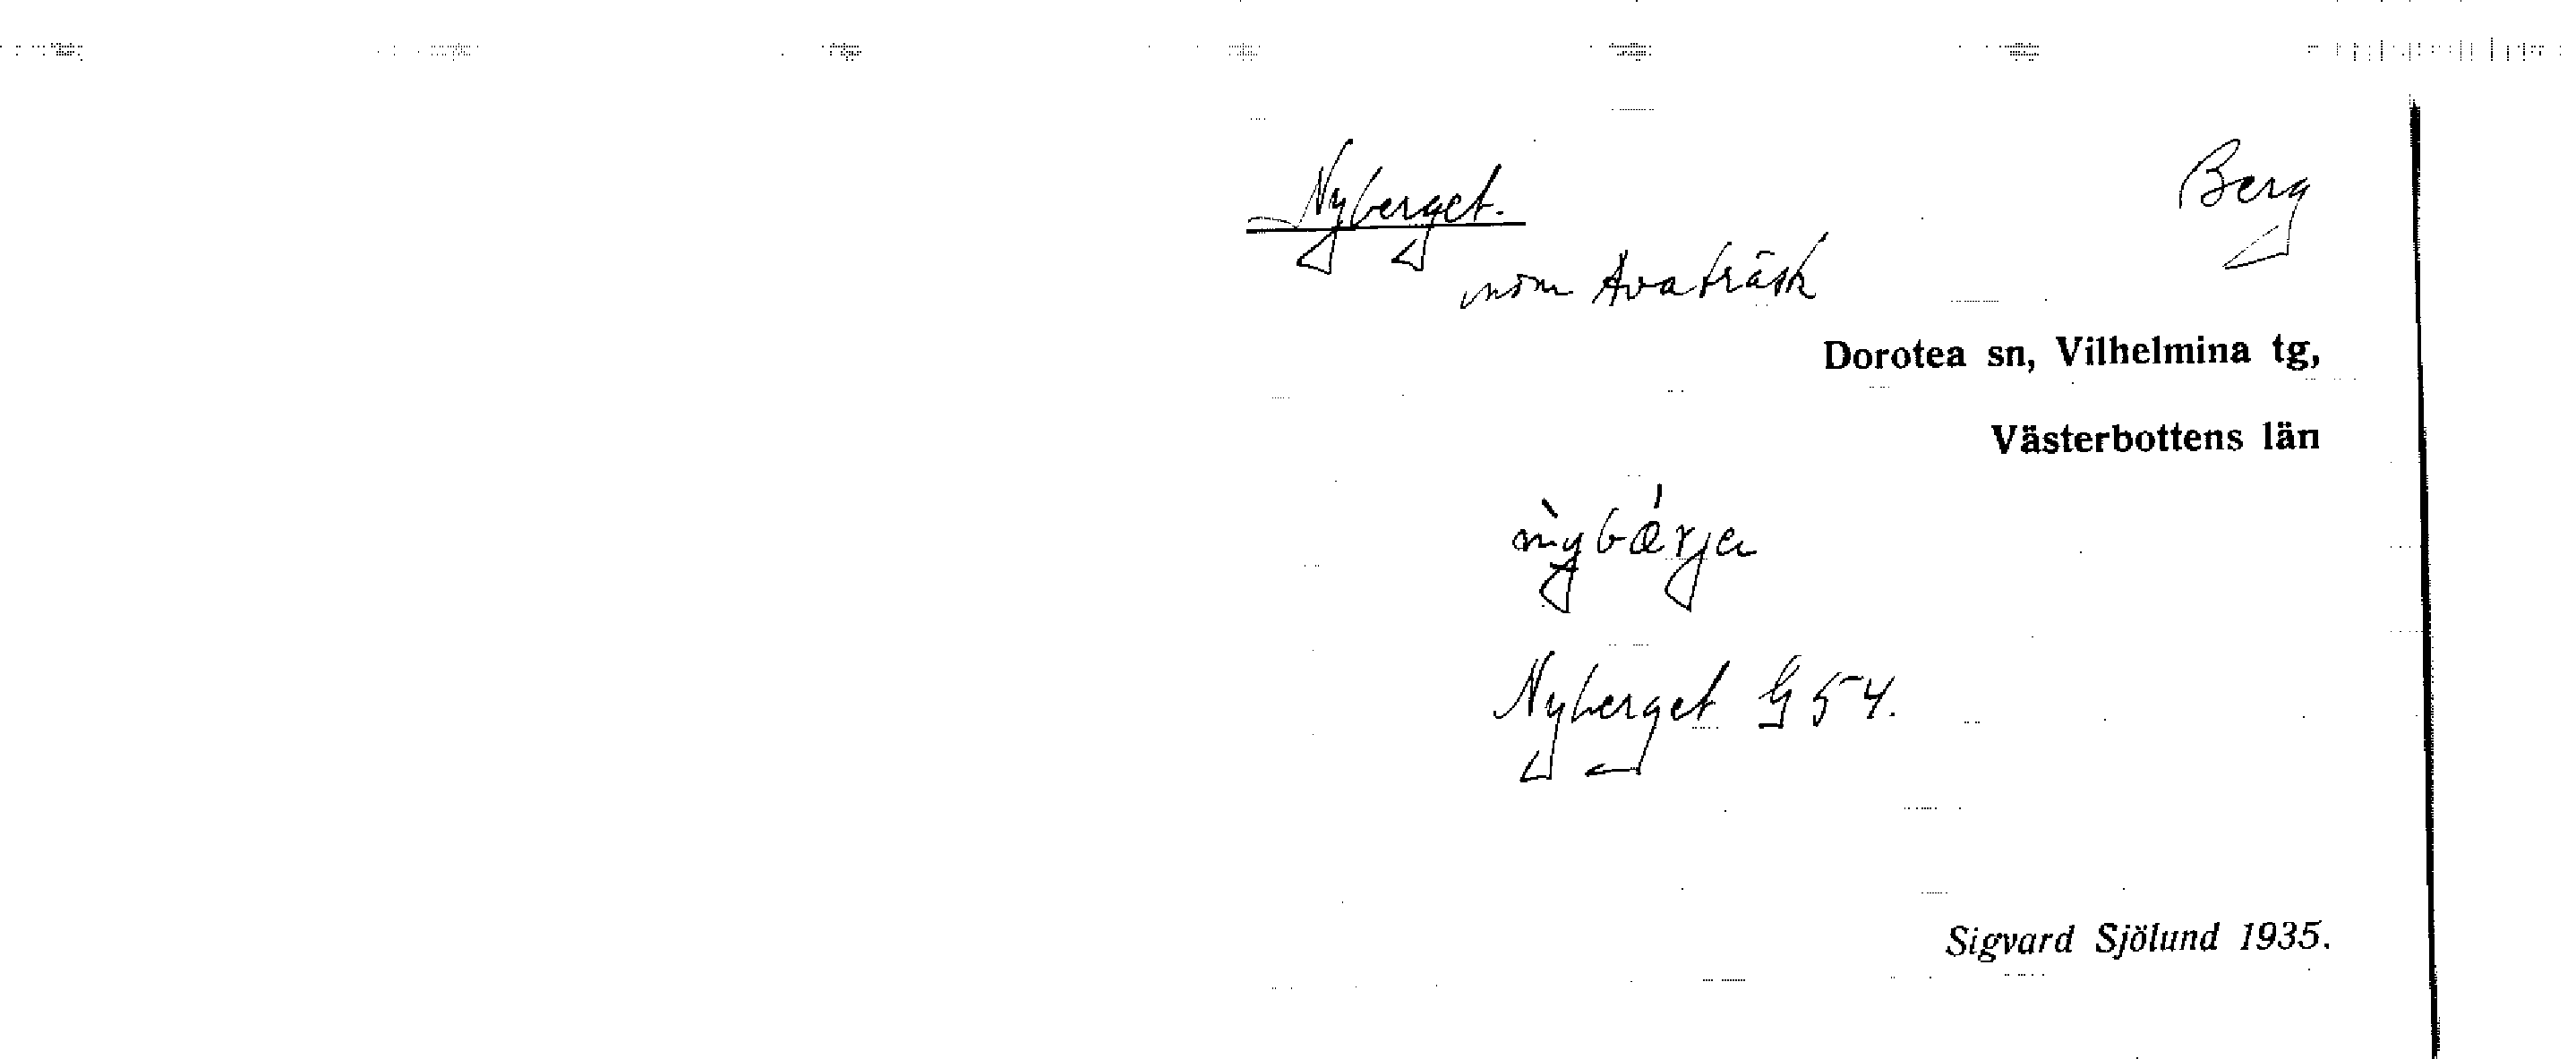 Nyberget.
Berg
inom Avaträsk
Dorotea sn, Vilhelmina tg,
Västerbottens län
nybærja
Nyberget G 54.
Sigvard Sjölund 1935.